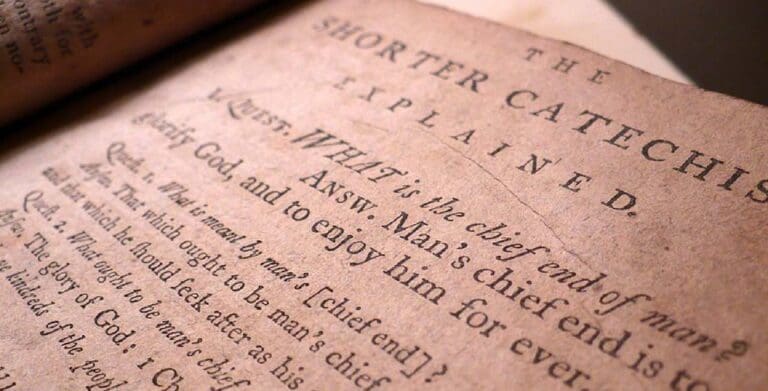 with
oth for
contrary
en no.
THE
SHORTER CATECHIS
EXPLAINED.
1. QUEST. WHAT is the chief end of man?
ANSW. Man's chief end is to
glorify God, and to enjoy him for ever.
Quest. 1. What is meant by man's [chief end]?
Answ. That which ought to be man's chief
and that which he ſhould ſeek after as his
Queſt. 2. What ought to be man's chief
Anſw. The glory of God: 1 Ch
kindreds of the people